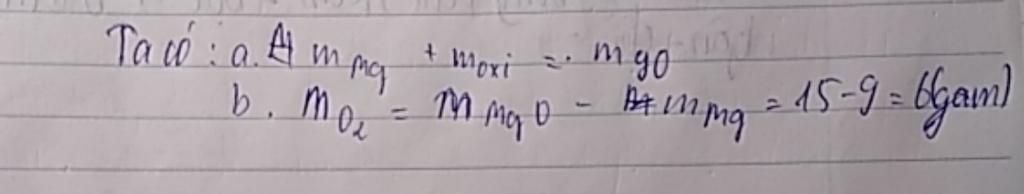 Ta có: a. m Mg + m oxi = m gO
b. m O2 = m MgO - m Mg = 15-9=6(gam)